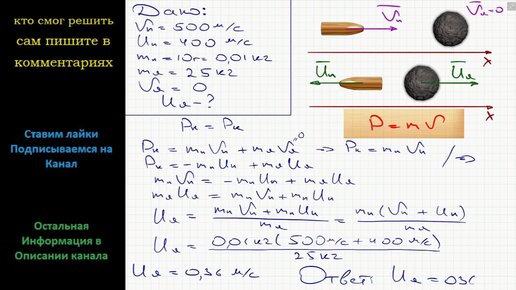 кто смог решить
сам пишите в
комментариях
Ставим лайки
Подписываемся на
Канал
Остальная
Информация в
Описании канала
Дано:
Vп = 500 м/с
Uп = 400 м/с
mп = 10г = 0,01 кг
mя = 25 кг
Vя = 0
Uя - ?
Vп
Vя = 0
x
Uп Uя
x
P = mV
Pн = Pк
Pн = mпVп + mяVя=0 → Pн = mпVп
Pк = -mпUп + mяUя
mпVп = -mпUп + mяUя
mяUя = mпVп + mпUп
Uя = (mпVп + mпUп)/mя = mп(Vп + Uп)/mя
Uя = 0,01кг(500м/с + 400м/с)/25кг
Uя = 0,36 м/с Ответ: Uя = 0,36